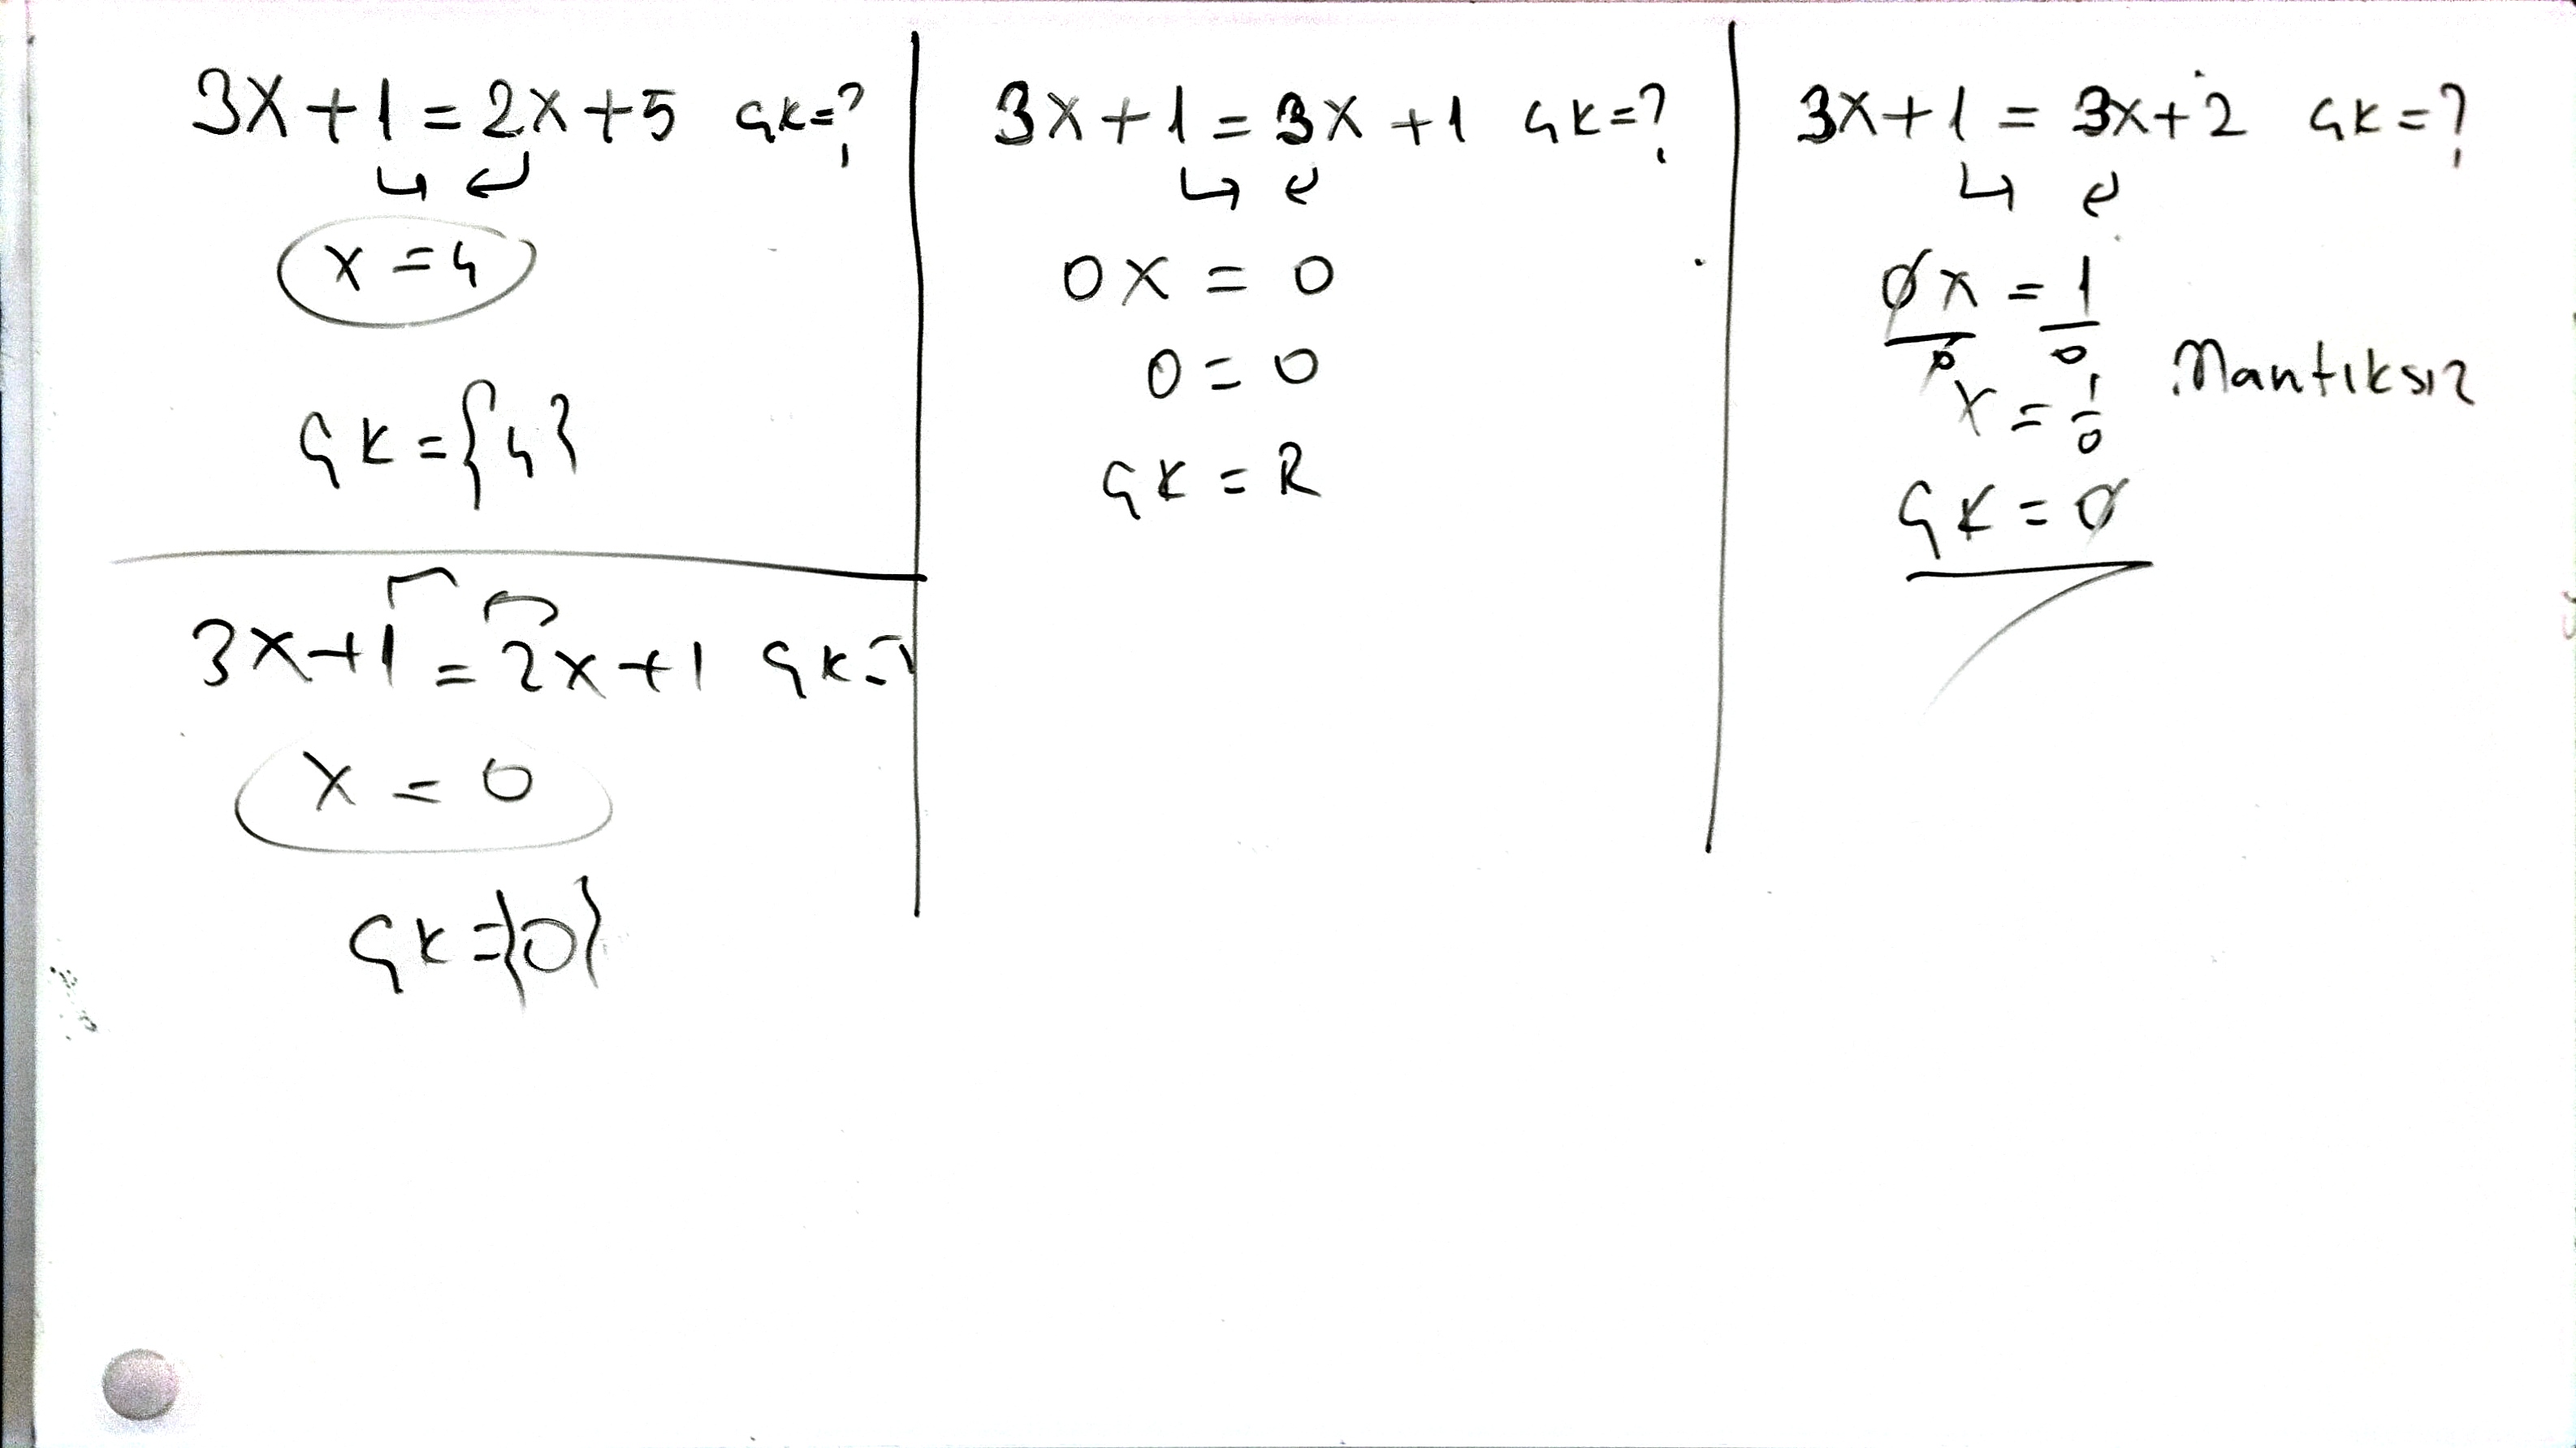 3x+1=2x+5 ÇK=?
x=4
ÇK={4}
3x+1=2x+1 ÇK=?
x=0
ÇK={0}
3x+1=3x+1 ÇK=?
0x=0
0=0
ÇK=R
3x+1=3x+2 ÇK=?
0x/0=1/0
x=1/0 Mantıksız
ÇK=∅